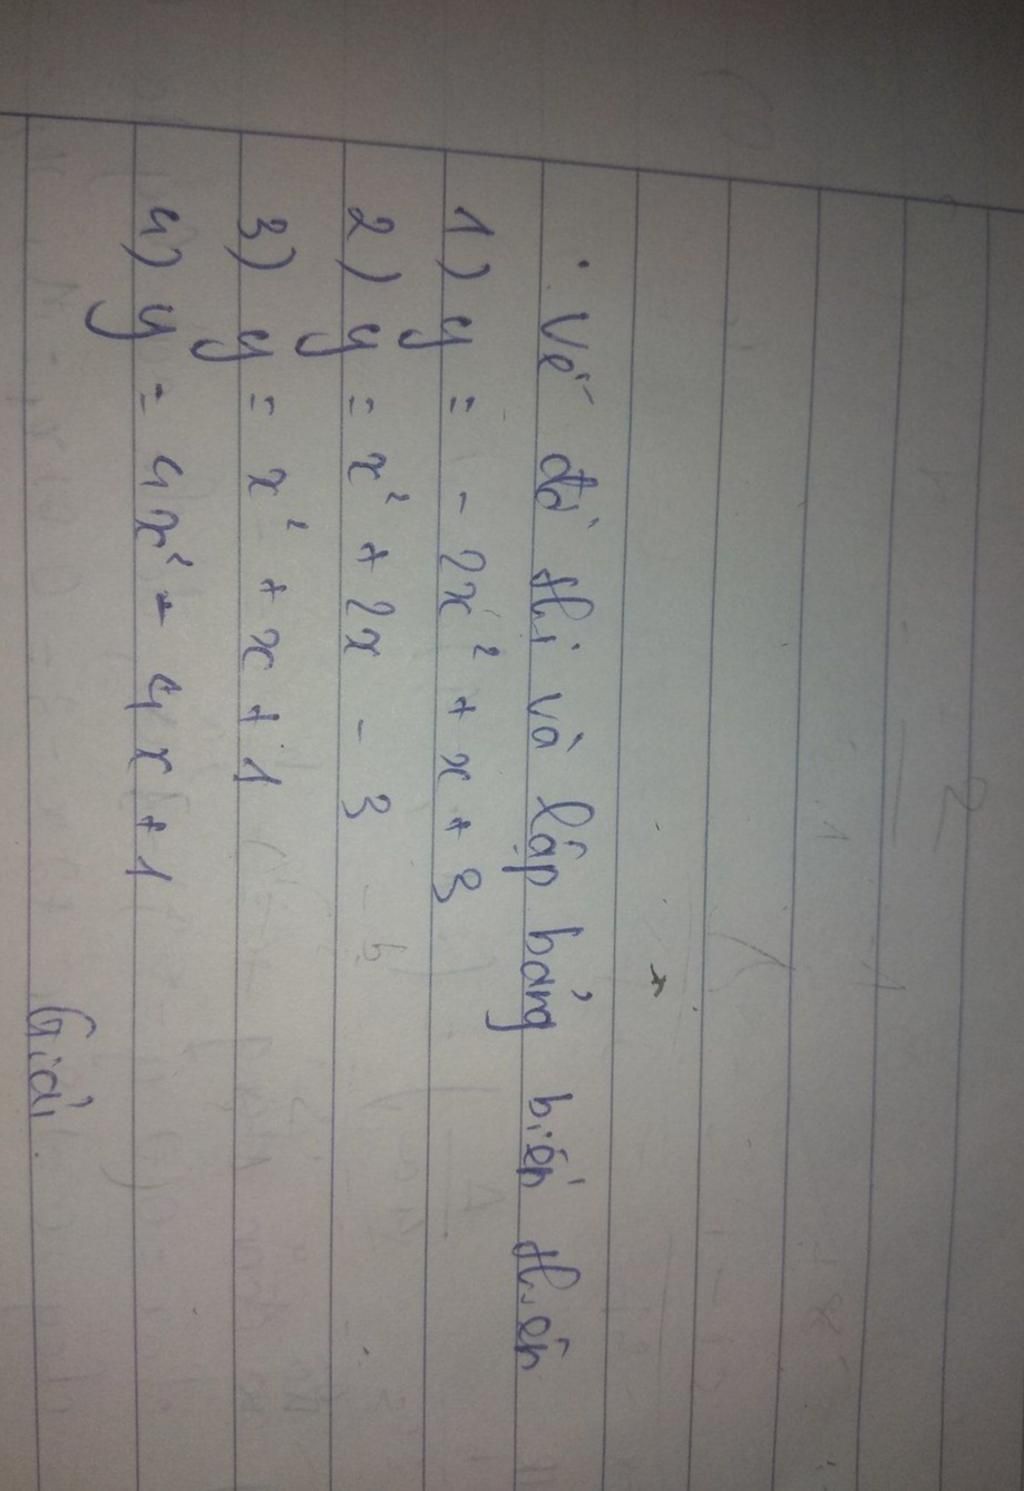 · Vẽ đồ thị và lập bảng biến thiên
1) y = - 2x² + x + 3
2) y = x² + 2x - 3
3) y = x² + x + 1
4) y = 4x² - 4x + 1
Giải